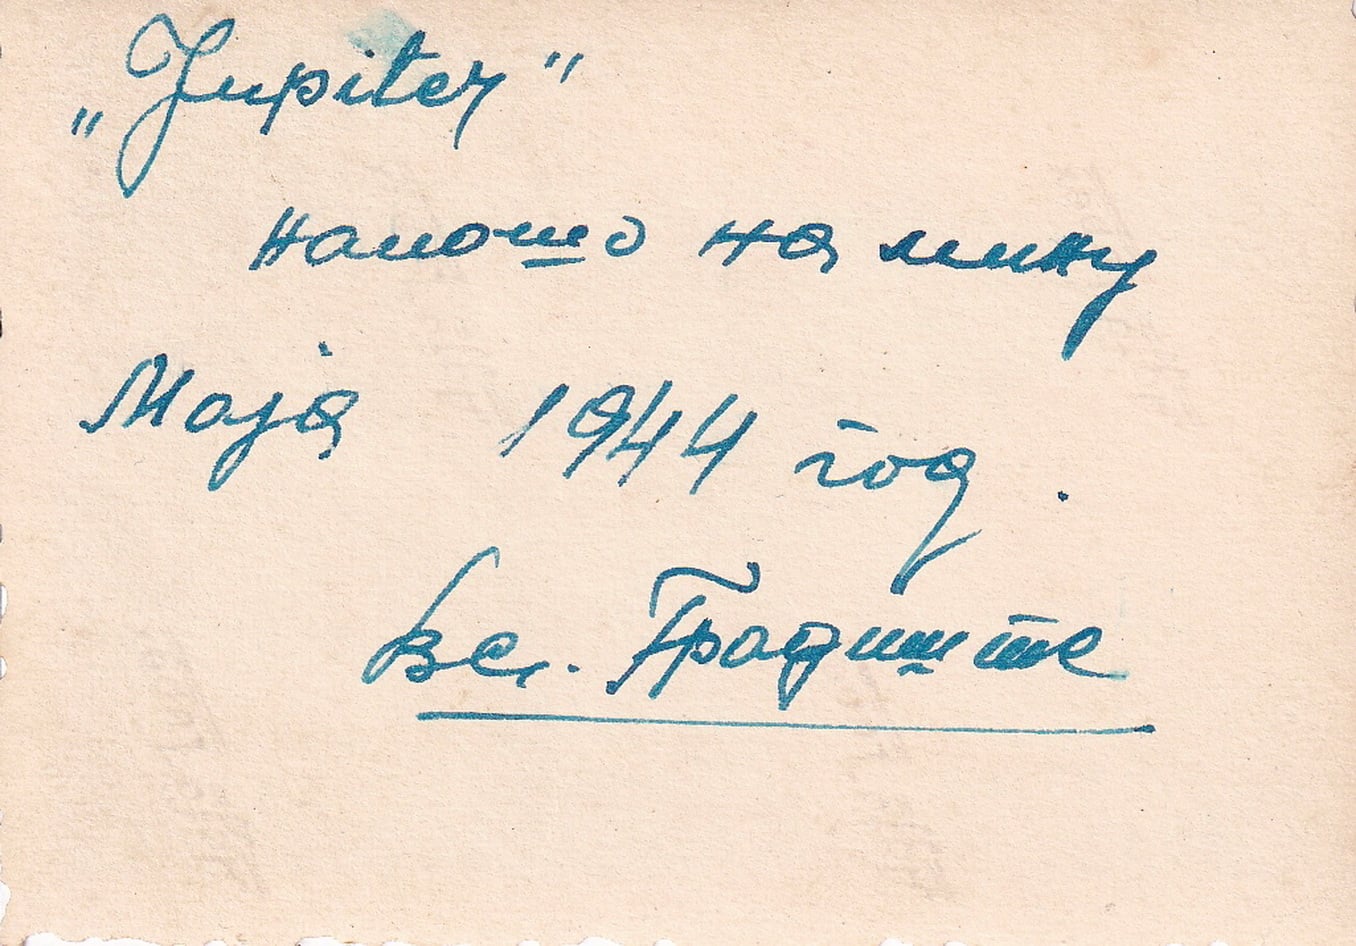 „Jupiter"
наиошо на мину
Маја 1944 год.
Вел. Градиште